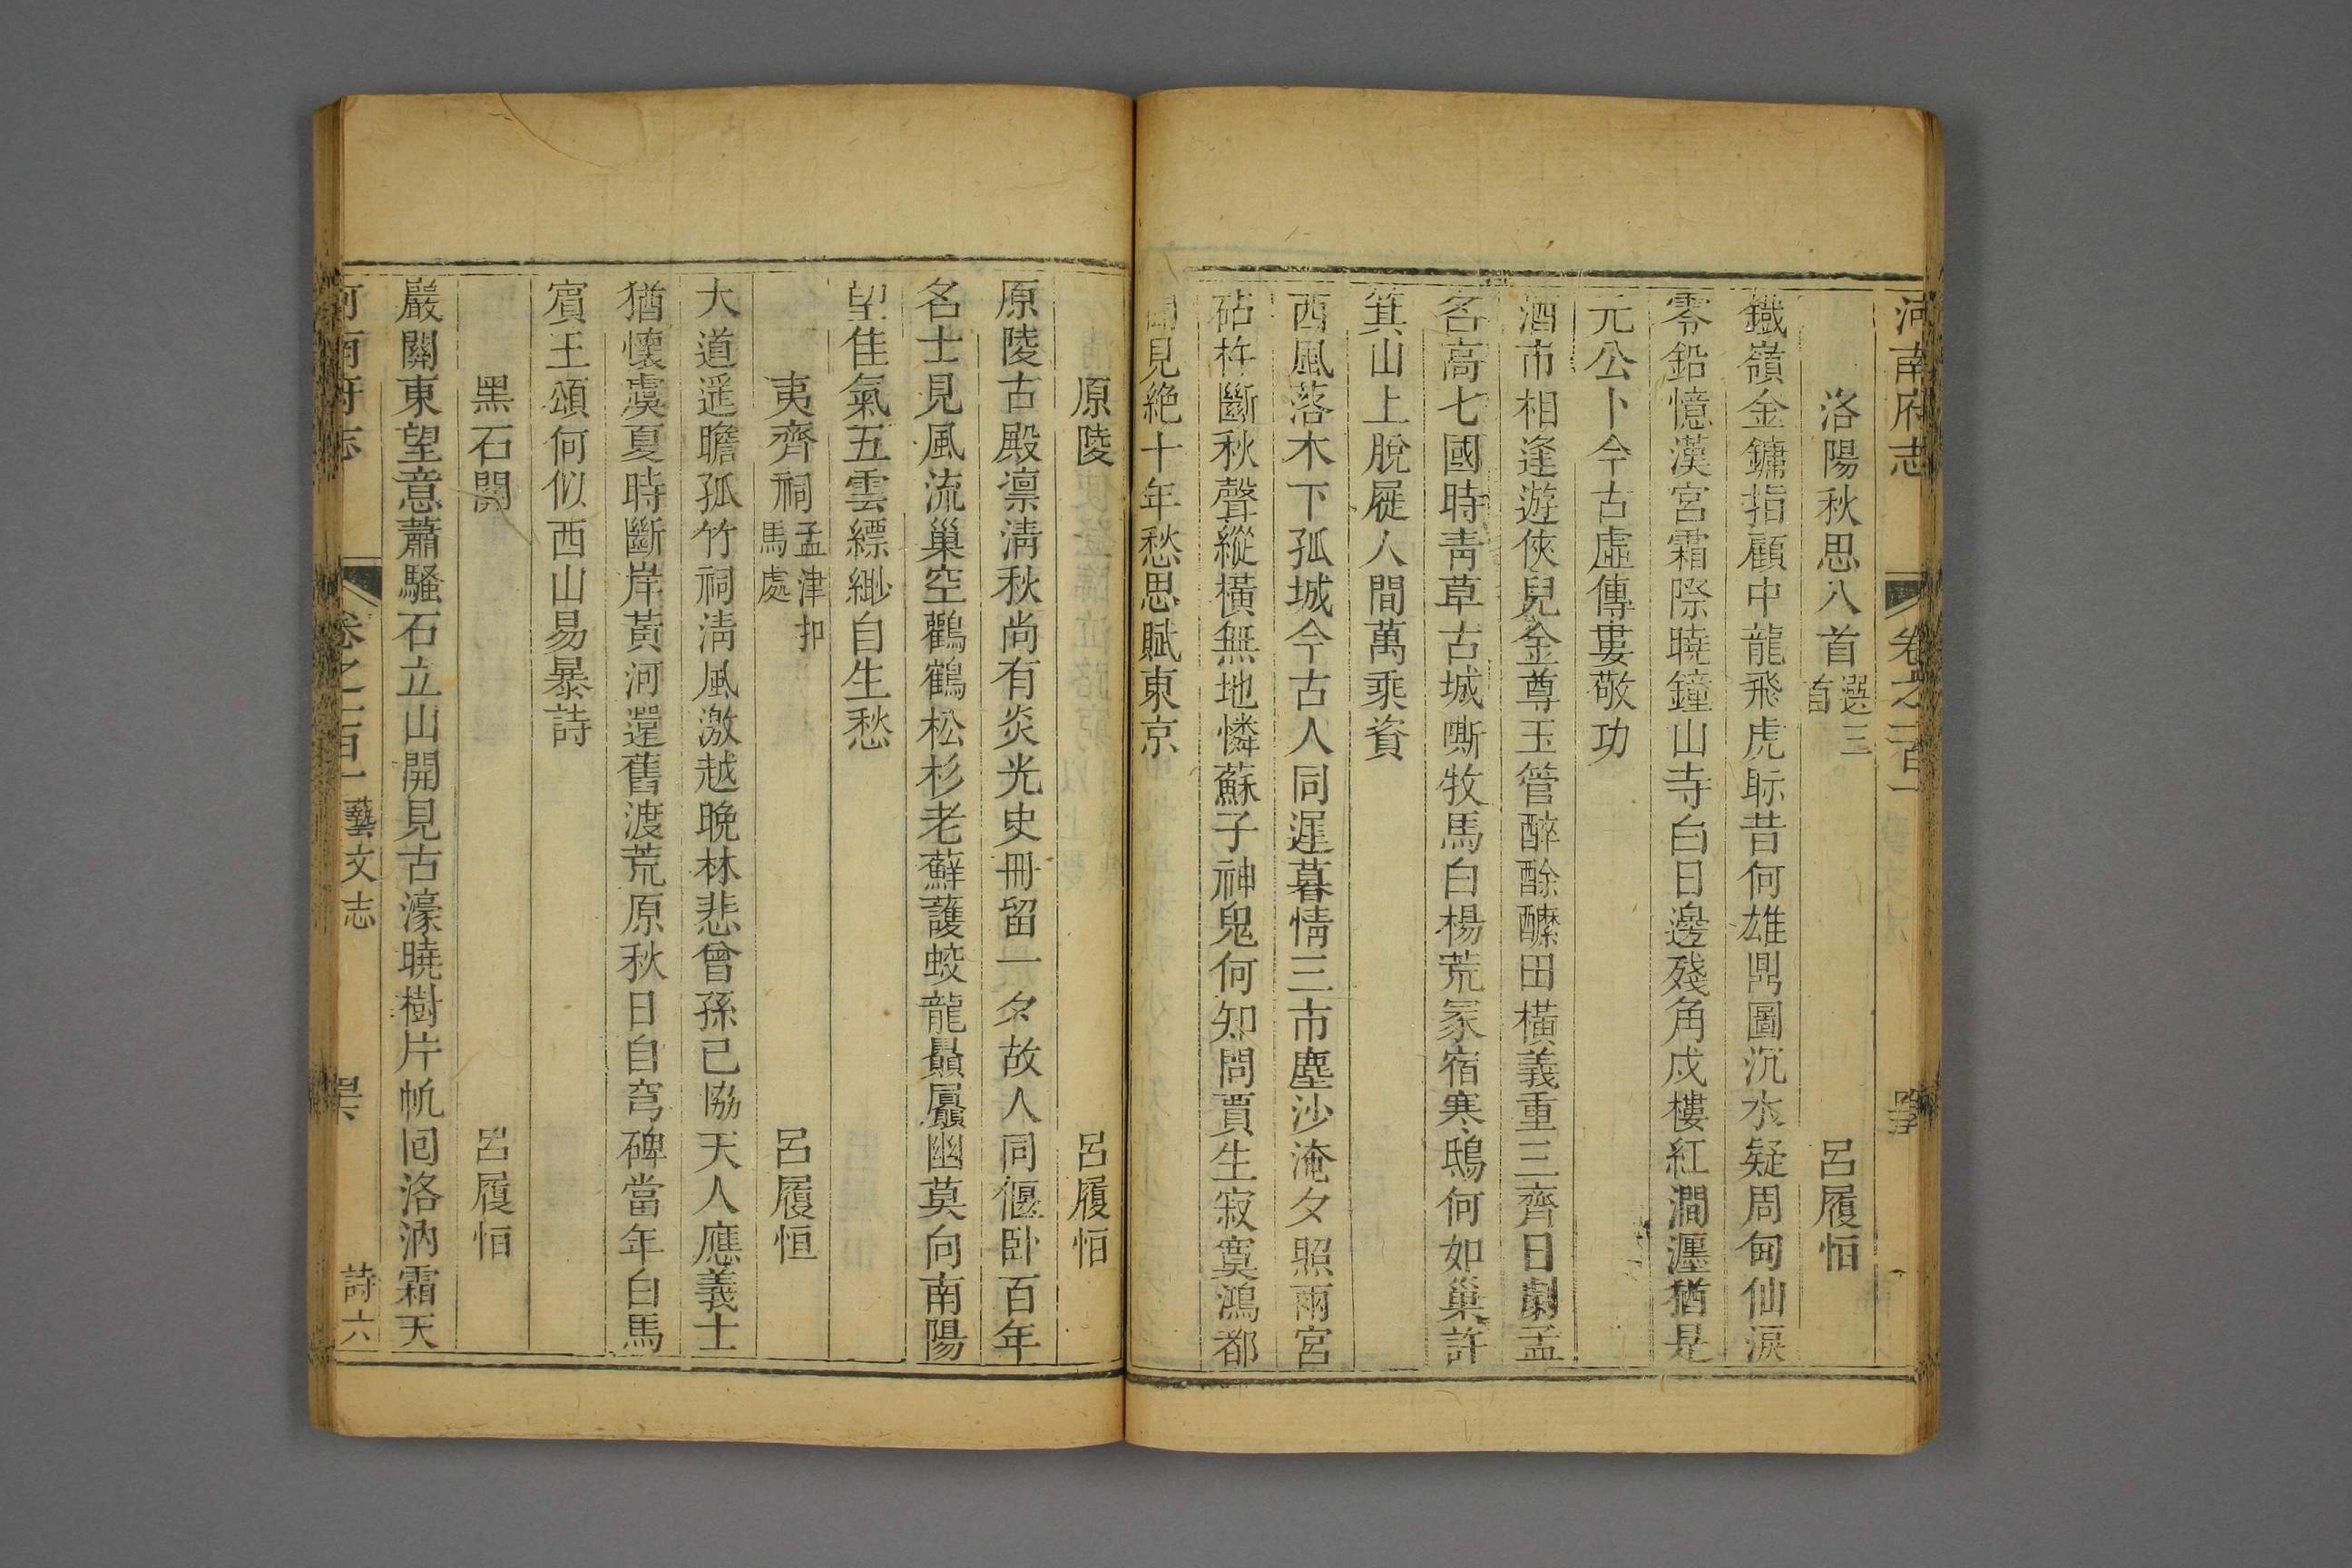 河南府志 卷之一百一
洛陽秋思八首選三首 呂履恒
鐵嶺金鏞指顧中龍飛虎眎昔何雄鼎圖沉水疑周甸仙淚
零鉛憶漢宮霜際曉鐘山寺白日邊殘角戍樓紅澗瀍猶是
元公卜今古虛傳婁敬功
酒市相逢遊俠兒金尊玉管醉酴醿田橫義重三齊日劇孟
名高七國時青草古城嘶牧馬白楊荒冢宿寒鴟何如巢許
箕山上脫屣人間萬乘資
西風落木下孤城今古人同遲暮情三市塵沙淹夕照兩宮
砧杵斷秋聲縱橫無地憐蘇子神鬼何知問賈生寂寞鴻都
聞見絶十年愁思賦東京
原陵 呂履恒
原陵古殿凛清秋尚有炎光史冊留一夕故人同偃卧百年
名士見風流巢空鸛鶴松杉老蘚護蛟龍贔屭幽莫向南陽
望佳氣五雲縹緲自生愁
夷齊祠孟津扣馬處 呂履恒
大道遥瞻孤竹祠清風激越晚林悲曾孫已協天人應義士
猶懷虞夏時斷岸黃河還舊渡荒原秋日自穹碑當年白馬
賓王頌何似西山易暴詩
黑石關 呂履恒
嚴關東望意蕭騷石立山開見古濠曉樹片帆囘洛汭霜天
河南府志 卷之一百一 藝文志 詩六